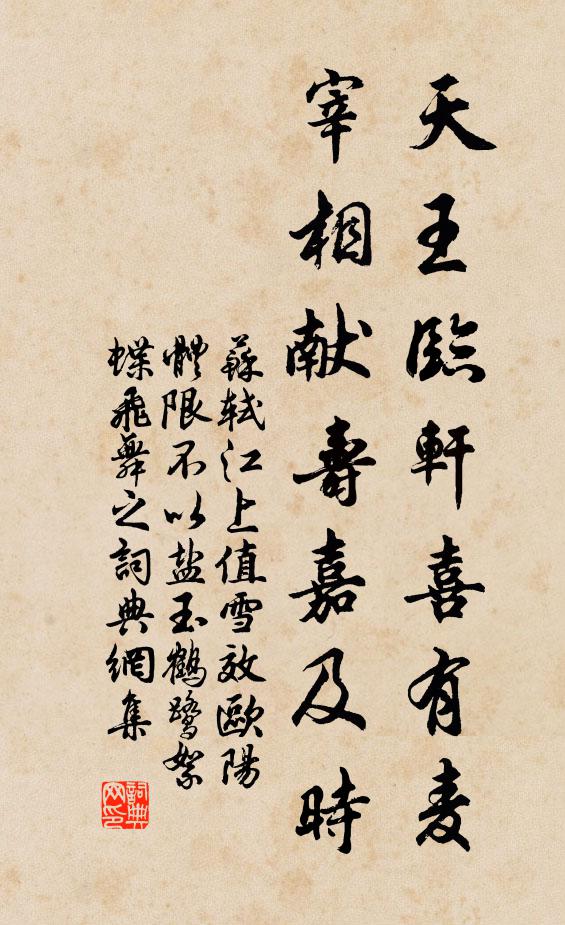 天王臨軒喜有麦
宰相献壽嘉及時
蘇軾江上值雪效歐陽
體限不以盐玉鶴鷺絮
蝶飛舞之詞典網集
詞典
网印